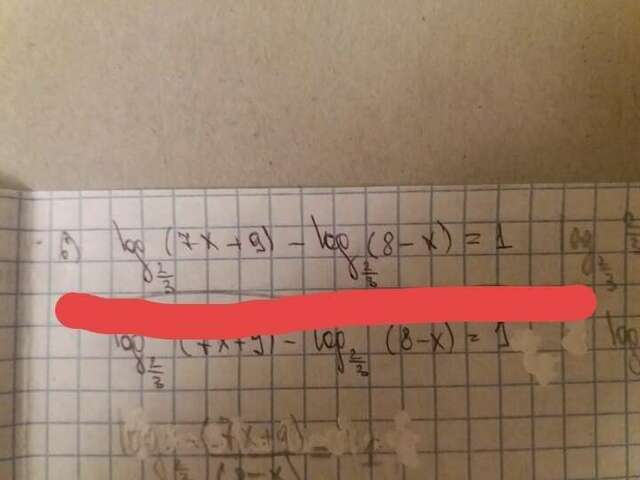 б) log_{2/3} (7x+9) - log_{2/3} (8-x) = 1
log_{2/3} (7x+9) - log_{2/3} (8-x) = 1
(7x+9)
(8-x)